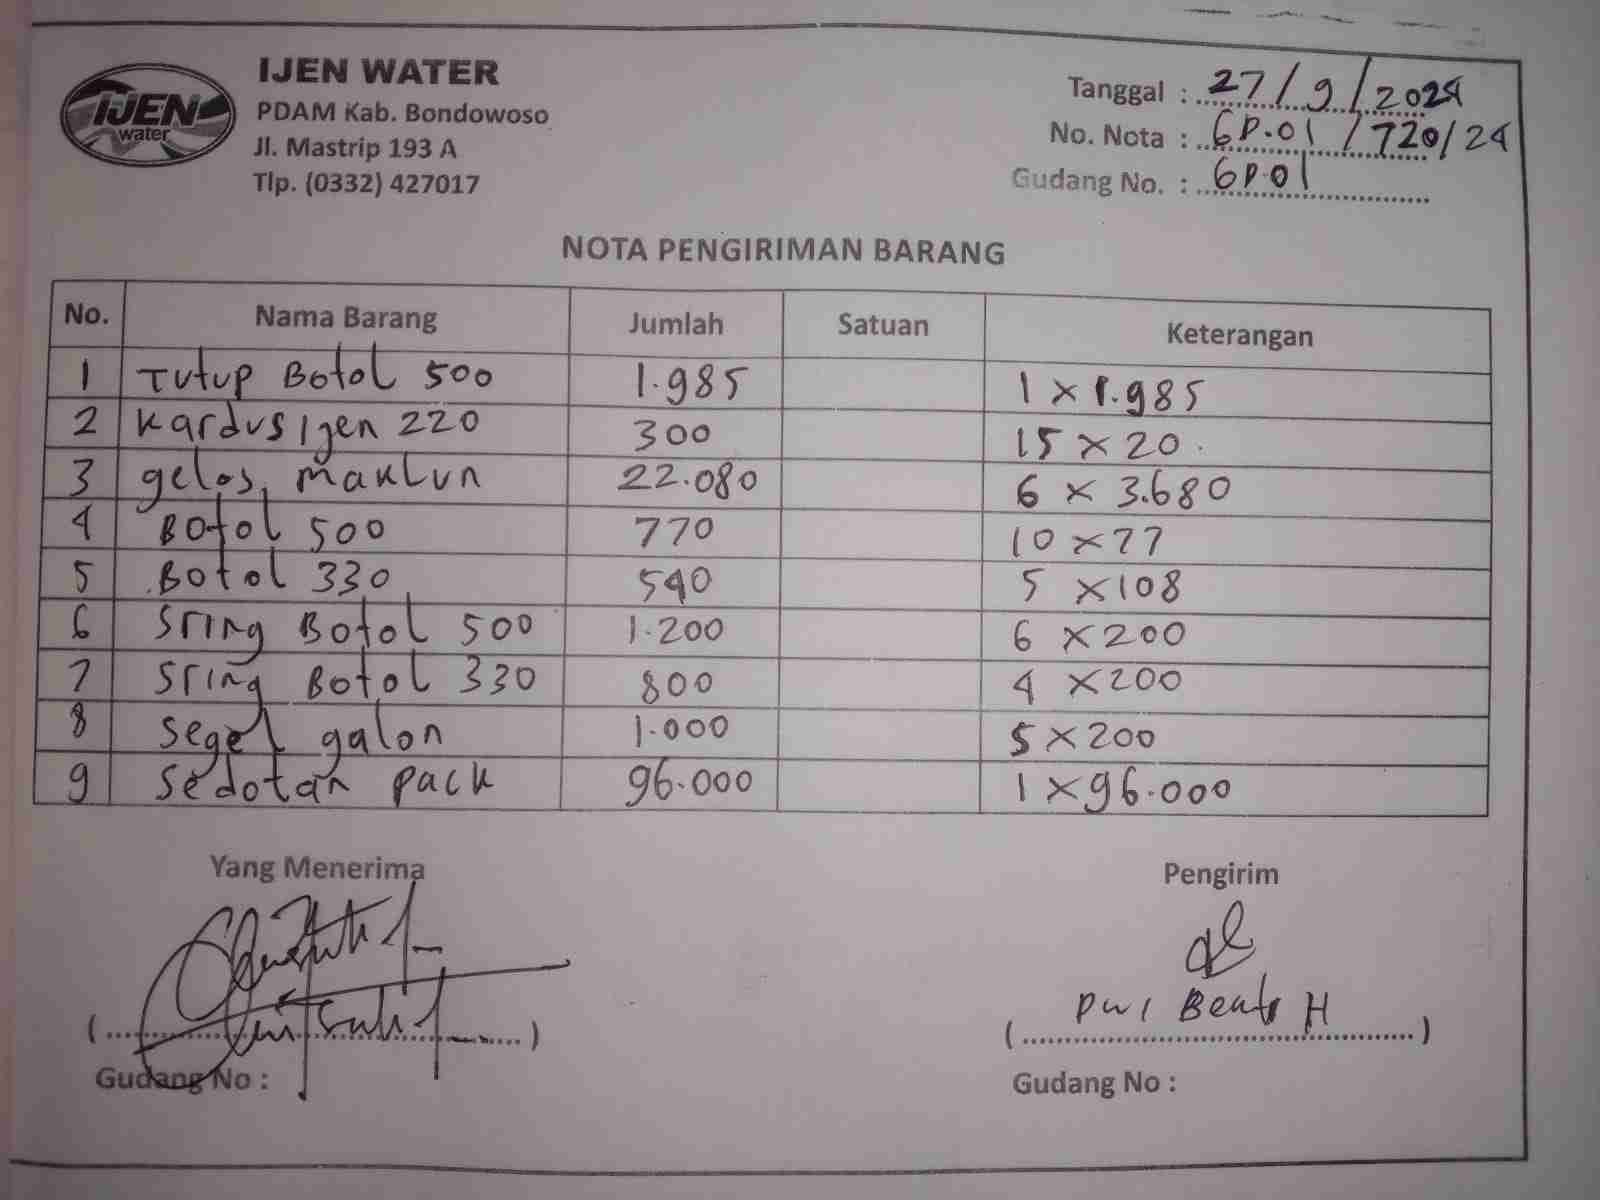 IJEN
water
IJEN WATER
PDAM Kab. Bondowoso
Jl. Mastrip 193 A
Tlp. (0332) 427017
Tanggal : 27/9/2024
No. Nota : GD.01/720/24
Gudang No. : GD.01
NOTA PENGIRIMAN BARANG
No. Nama Barang Jumlah Satuan Keterangan
1 Tutup Botol 500 1.985 1 x 1.985
2 Kardus Ijen 220 300 15 x 20
3 gelas Maklun 22.080 6 x 3.680
4 Botol 500 770 10 x 77
5 Botol 330 540 5 x 108
6 Sring Botol 500 1.200 6 x 200
7 Sring Botol 330 800 4 x 200
8 Segel galon 1.000 5 x 200
9 Sedotan pack 96.000 1 x 96.000
Yang Menerima Pengirim
(....................) (Dwi H)
Gudang No : Gudang No :